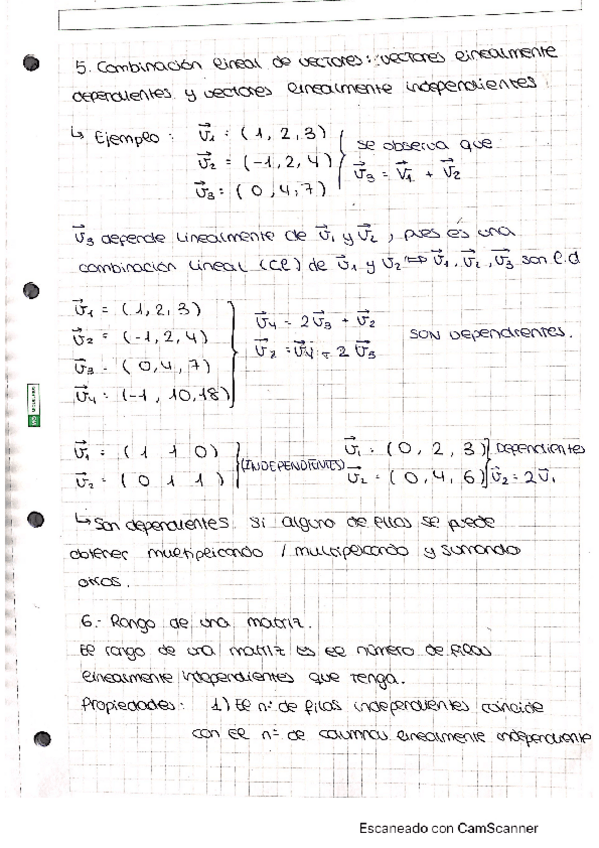 5. Combinación lineal de vectores: vectores linealmente
dependientes y vectores linealmente independientes.
↳ Ejemplo: v⃗₁ = (1, 2, 3)
v⃗₂ = (-1, 2, 4)
v⃗₃ = (0, 4, 7)
se observa que
v⃗₃ = v⃗₁ + v⃗₂
v⃗₃ depende linealmente de v⃗₁ y v⃗₂, pues es una
combinación lineal (CL) de v⃗₁ y v⃗₂ ⇔ v⃗₁, v⃗₂, v⃗₃ son l.d
v⃗₁ = (1, 2, 3)
v⃗₂ = (-1, 2, 4)
v⃗₃ = (0, 4, 7)
v⃗₄ = (-1, 10, 18)
v⃗₄ = 2v⃗₃ + v⃗₂
v⃗₂ = v⃗₄ - 2v⃗₃
SON DEPENDIENTES.
v⃗₁ = (1 1 0)
v⃗₂ = (0 1 1)
(INDEPENDIENTES)
v⃗₁ = (0, 2, 3)
v⃗₂ = (0, 4, 6)
Dependientes
v⃗₂ = 2v⃗₁
↳ Son dependientes si alguno de ellos se puede
obtener multiplicando / multiplicando y sumando
otros.
6.- Rango de una matriz.
El rango de una matriz es el número de filas
linealmente independientes que tenga.
Propiedades: 1) El nº de filas independientes coincide
con el nº de columnas linealmente independiente
Escaneado con CamScanner